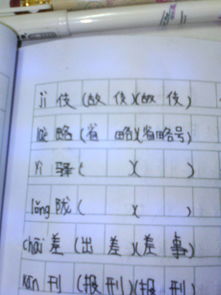 jì 伎 (故 伎)(故 伎)
lüè 略 (省 略)(省略号)
yì 驿 ( )( )
lǒng 陇 ( )( )
chāi 差 (出 差)(差 事)
kān 刊 (报 刊)(报 刊)